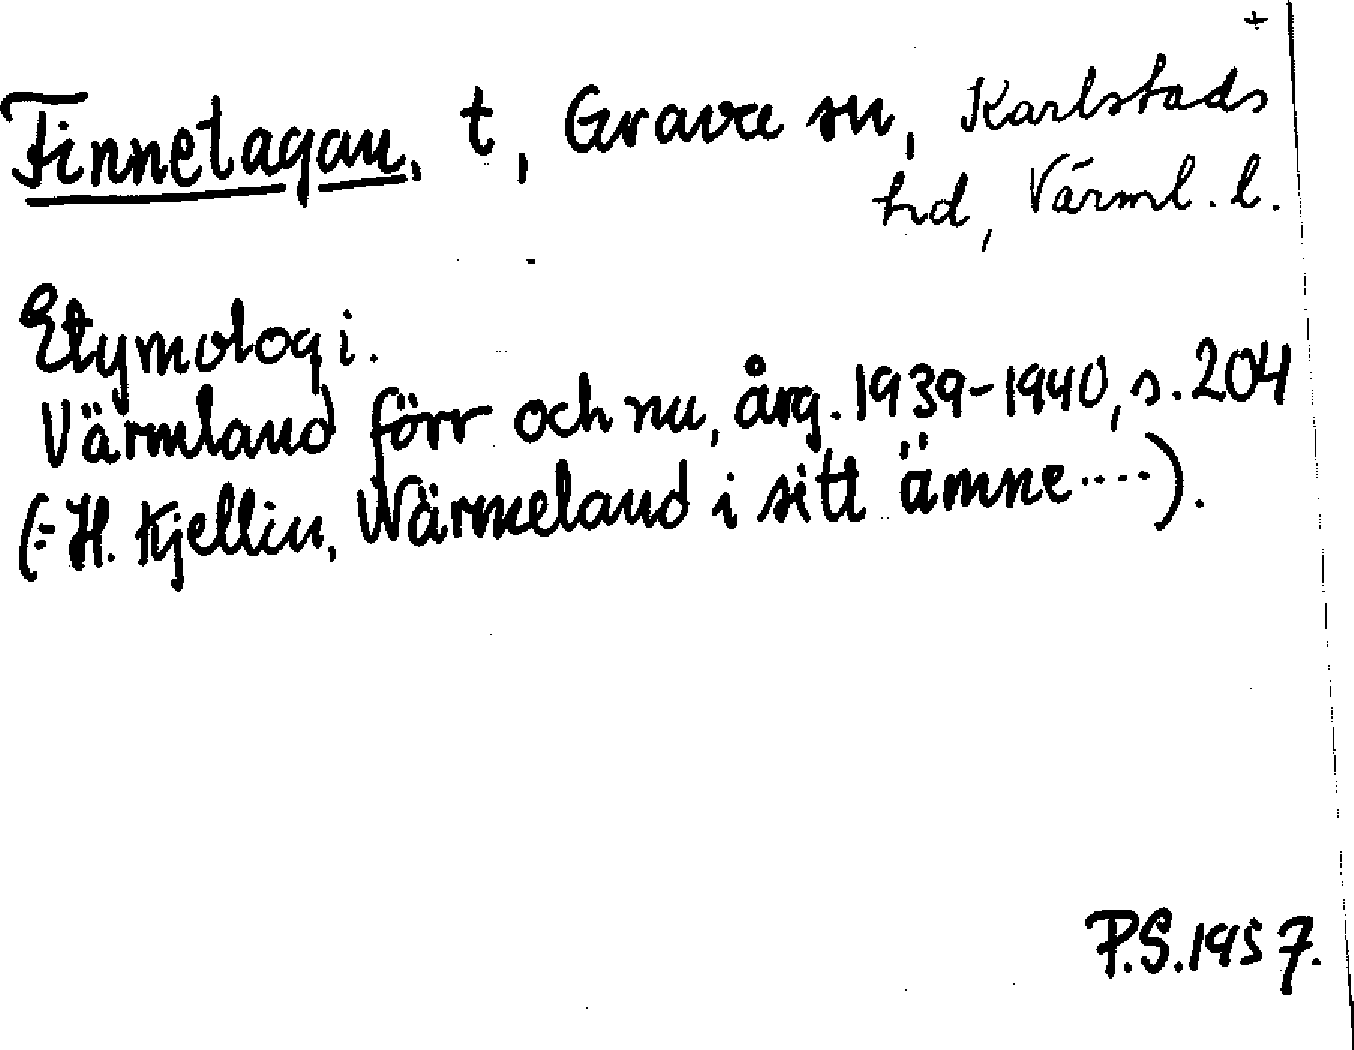 +
Finnetagan, t, Grava sn, Karlstads
hd, Värml. l.
Etymologi.
Värmland förr och nu, årg. 1939-1940, s. 204
(= H. Kjellin, Wärmeland i sitt ämne ....).
P.S. 1957.